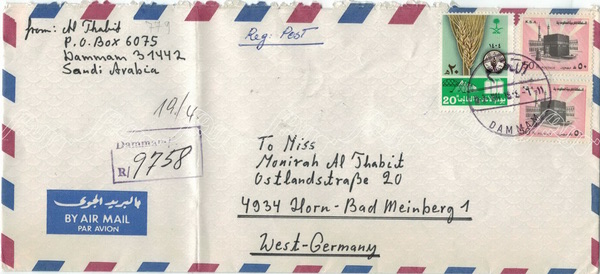 from: Al Thabit
P.O.Box 6075
Dammam 31442
Saudi Arabia
Reg: Post
19/4.
Dammam
R/ 9758
بالبريد الجوي
BY AIR MAIL
PAR AVION
To Miss
Monirah Al Thabit
Ostlandstraße 20
4934 Horn-Bad Meinberg 1
West-Germany
١٤٠٤
٢٠
20
K.S.A.
٥٠
50
٥٠
DAMMAM